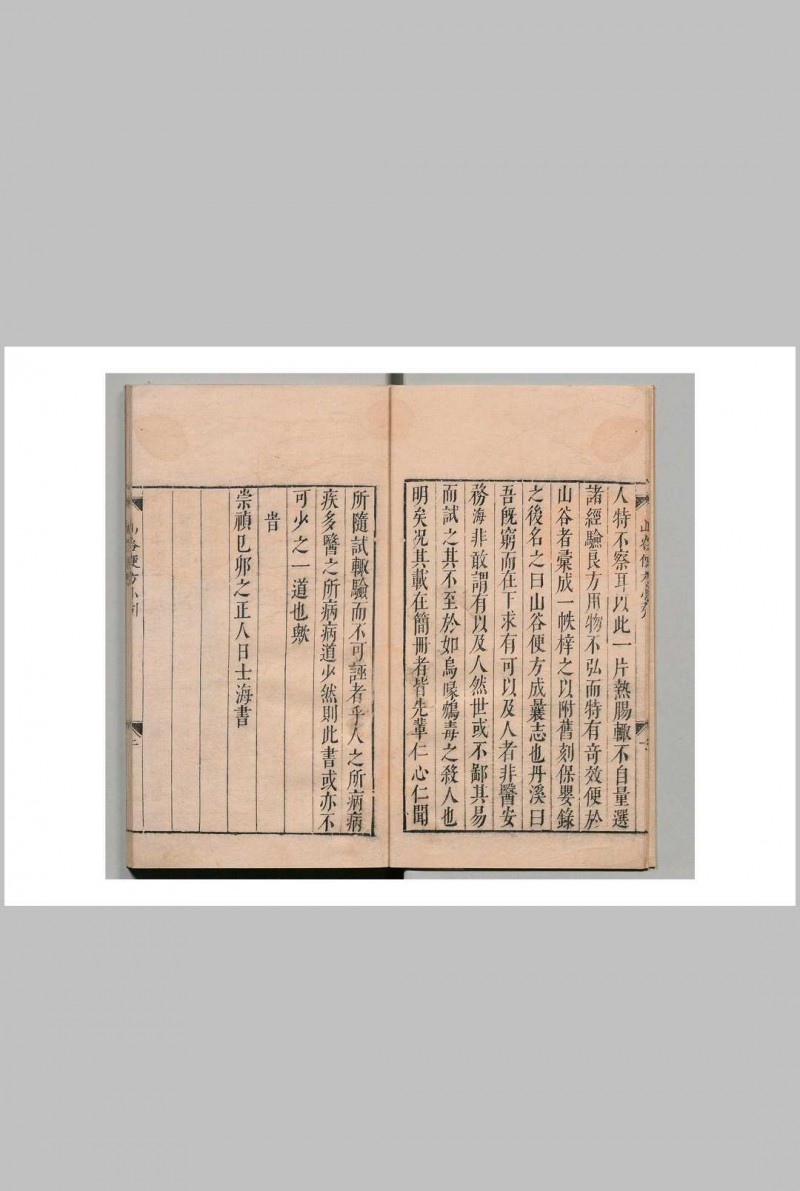 人特不察耳以此一片熱腸輙不自量選
諸經驗良方用物不弘而特有奇效便於
山谷者彚成一帙梓之以附舊刻保嬰錄
之後名之曰山谷便方成曩志也丹溪曰
吾旣窮而在下求有可以及人者非醫安
務海非敢謂有以及人然世或不鄙其易
而試之其不至於如烏喙鴆毒之殺人也
明矣况其載在簡冊者皆先輩仁心仁聞
所隨試輙驗而不可誣者乎人之所病病
疾多醫之所病病道少然則此書或亦不
可少之一道也歟
旹
崇禎己卯之正人日士海書
山谷便方